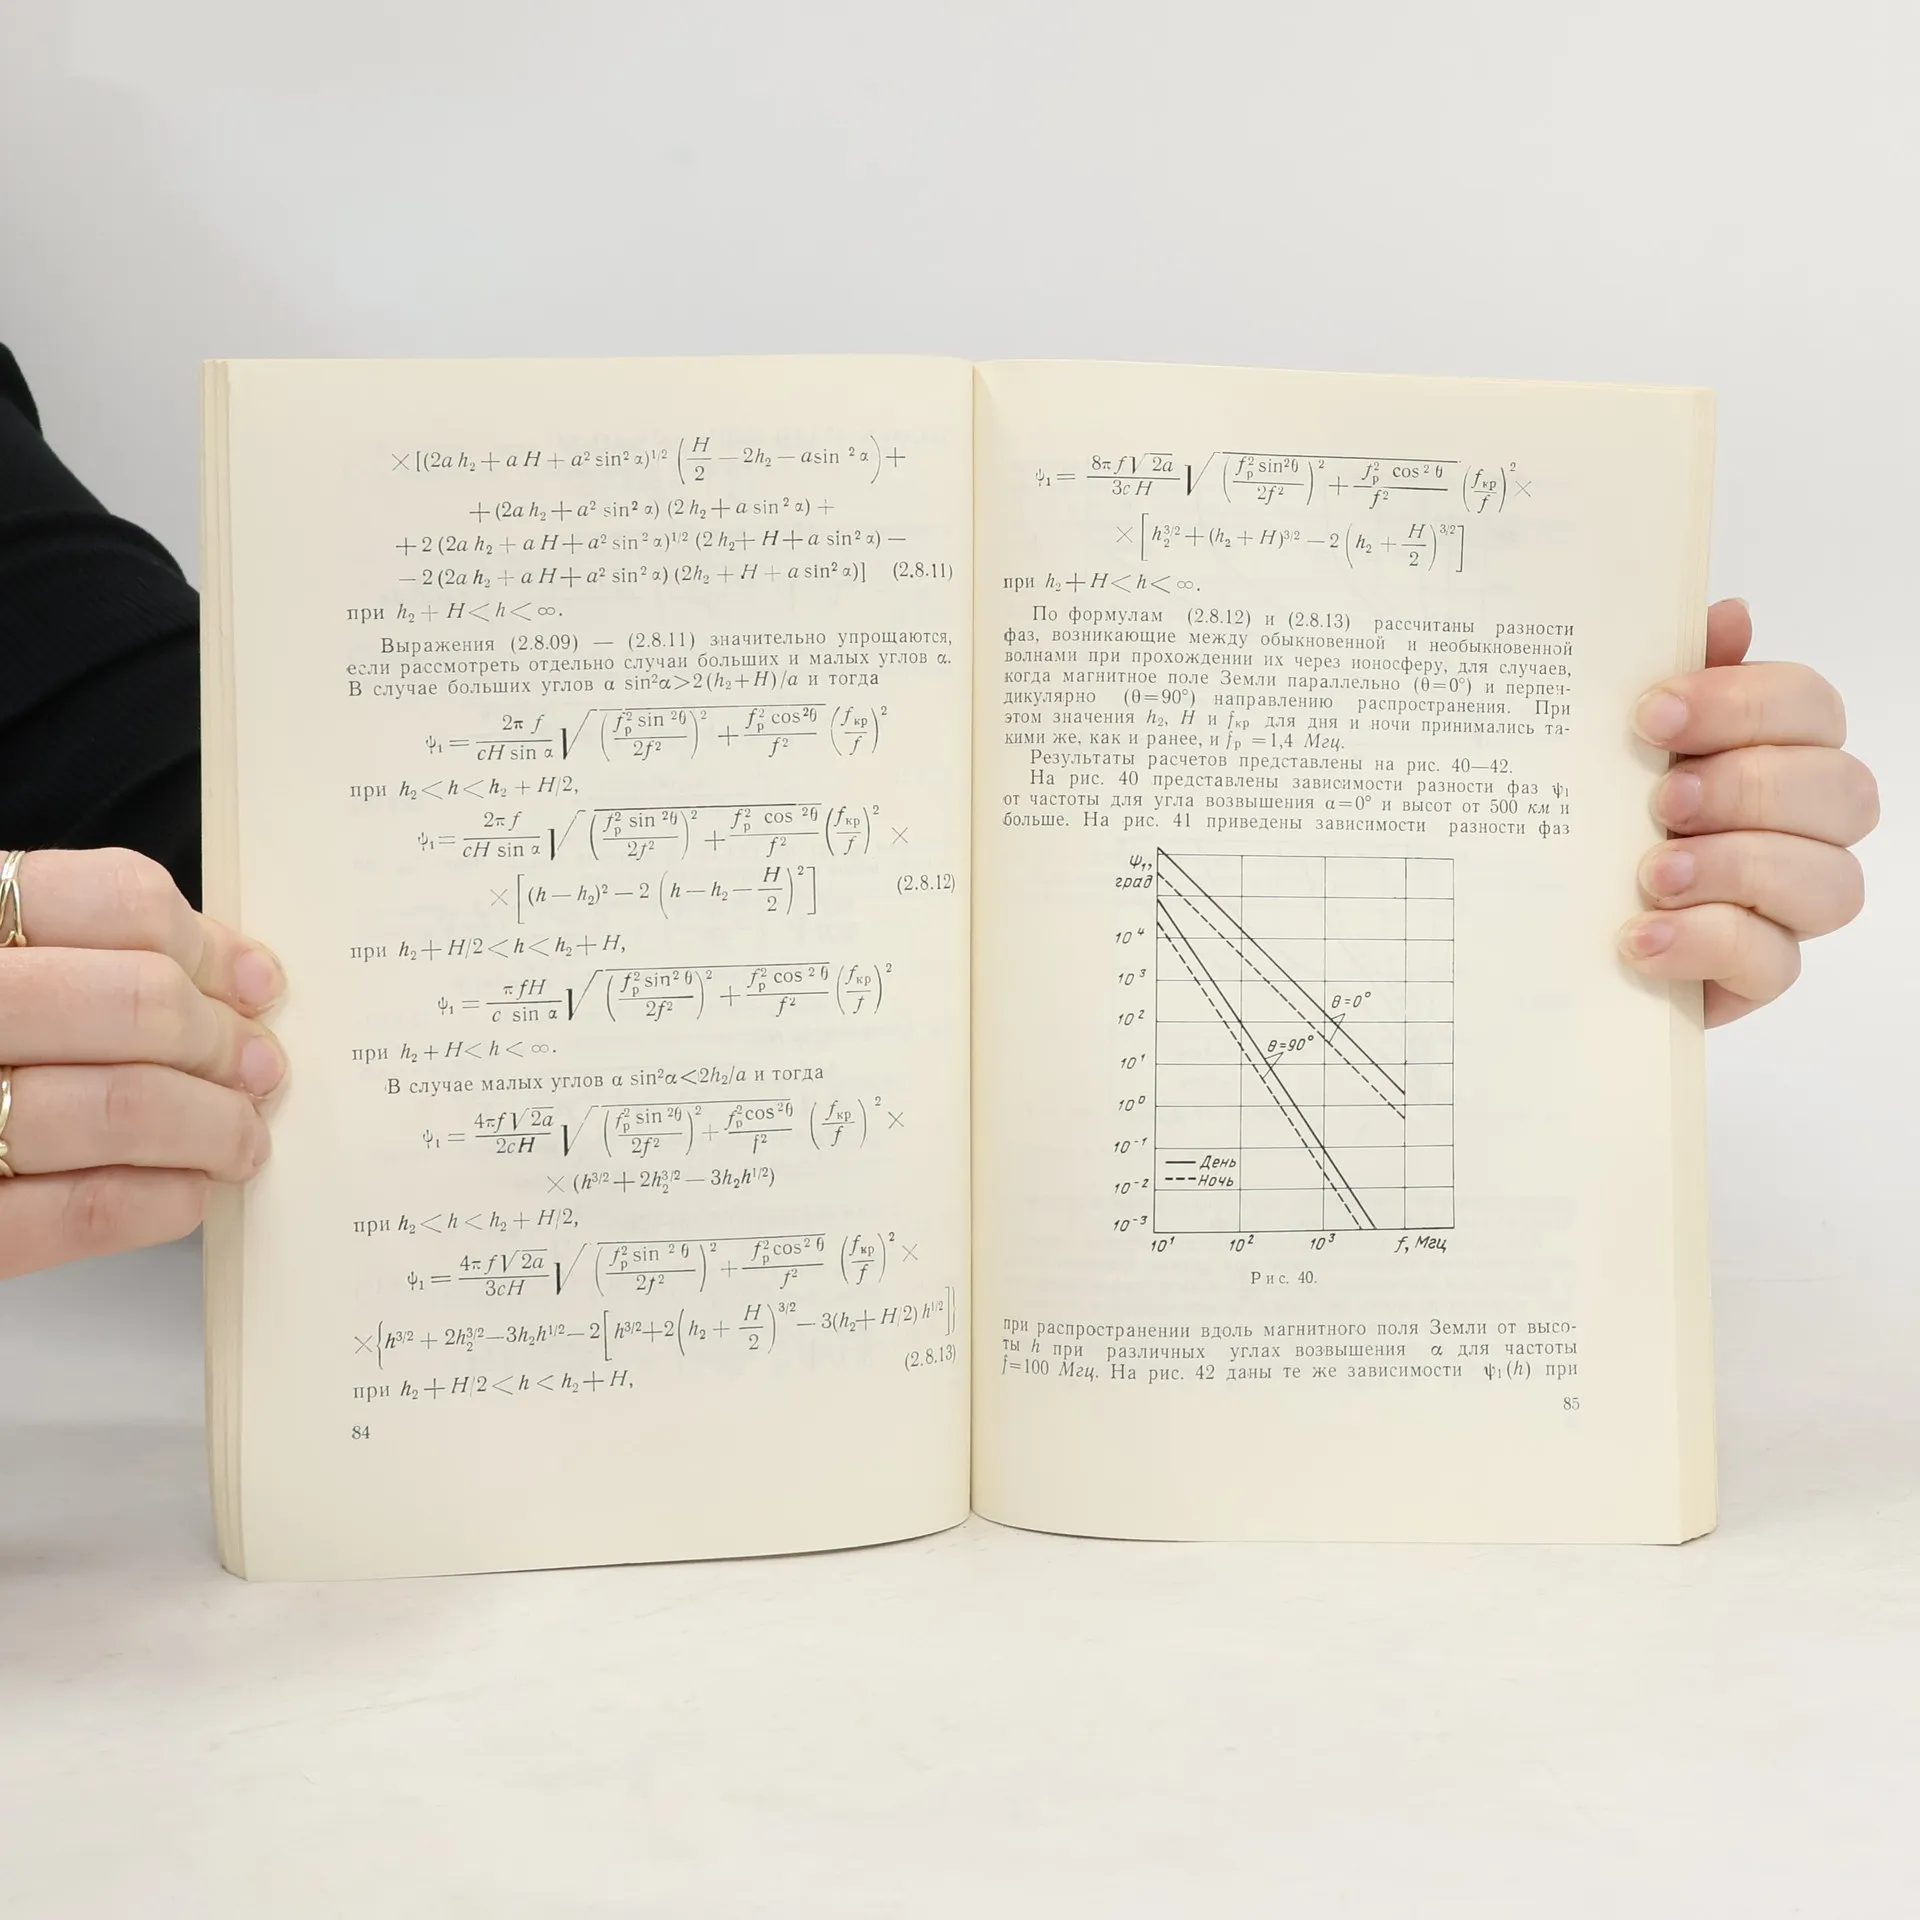 ×[(2a h₂ + a H + a² sin² α)^1/2 (H/2 — 2h₂ — a sin² α) +
+ (2a h₂ + a² sin² α) (2 h₂ + a sin² α) +
+ 2 (2a h₂ + a H + a² sin² α)^1/2 (2 h₂ + H + a sin² α) —
— 2 (2a h₂ + a H + a² sin² α) (2h₂ + H + a sin² α)] (2.8.11)
при h₂ + H < h < ∞.
Выражения (2.8.09) — (2.8.11) значительно упрощаются,
если рассмотреть отдельно случаи больших и малых углов α.
В случае больших углов α sin²α>2(h₂+H)/a и тогда
ψ₁ = 2π f / cH sin α √ (f²р sin ²θ / 2f²)² + f²р cos²θ / f² (fкр / f)²
при h₂ < h < h₂ + H/2,
ψ₁ = 2π f / cH sin α √ (f²р sin ²θ / 2f²)² + f²р cos ²θ / f² (fкр / f)² ×
× [(h — h₂)² — 2 (h — h₂ — H/2)²] (2.8.12)
при h₂ + H/2 < h < h₂ + H,
ψ₁ = π fH / c sin α √ (f²р sin² θ / 2f²)² + f²р cos ² θ / f² (fкр / f)²
при h₂ + H < h < ∞.
В случае малых углов α sin²α<2h₂/a и тогда
ψ₁ = 4πf√2a / 2cH √ (f²р sin ²θ / 2f²)² + f²р cos ²θ / f² (fкр / f)² ×
× (h^3/2 + 2h₂^3/2 — 3h₂h^1/2)
при h₂ < h < h₂ + H/2,
ψ₁ = 4π f√2a / 3cH √ (f²р sin ² θ / 2f²)² + f²р cos ² θ / f² (fкр / f)² ×
×{h^3/2 + 2h₂^3/2—3h₂h^1/2—2[h^3/2+2(h₂ + H/2)^3/2 — 3(h₂+ H/2) h^1/2]}
(2.8.13)
при h₂ + H/2 < h < h₂ + H,
84
ψ₁ = 8π f√2a / 3c H √ (f²р sin²θ / 2f²)² + f²р cos ² θ / f² (fкр / f)² ×
× [h₂^3/2 + (h₂ + H)^3/2 — 2 (h₂ + H/2)^3/2]
при h₂ + H < h < ∞.
По формулам (2.8.12) и (2.8.13) рассчитаны разности
фаз, возникающие между обыкновенной и необыкновенной
волнами при прохождении их через ионосферу, для случаев,
когда магнитное поле Земли параллельно (θ=0°) и перпен-
дикулярно (θ=90°) направлению распространения. При
этом значения h₂, H и fкр для дня и ночи принимались та-
кими же, как и ранее, и fр =1,4 Мгц.
Результаты расчетов представлены на рис. 40—42.
На рис. 40 представлены зависимости разности фаз ψ₁
от частоты для угла возвышения α=0° и высот от 500 км и
больше. На рис. 41 приведены зависимости разности фаз
ψ₁,
град
10⁴
10³
10²
10¹
10⁰
10⁻¹
10⁻²
10⁻³
θ=0°
θ=90°
День
Ночь
10¹ 10² 10³ f, Мгц
Рис. 40.
при распространении вдоль магнитного поля Земли от высо-
ты h при различных углах возвышения α для частоты
f=100 Мгц. На рис. 42 даны те же зависимости ψ₁(h) при
85